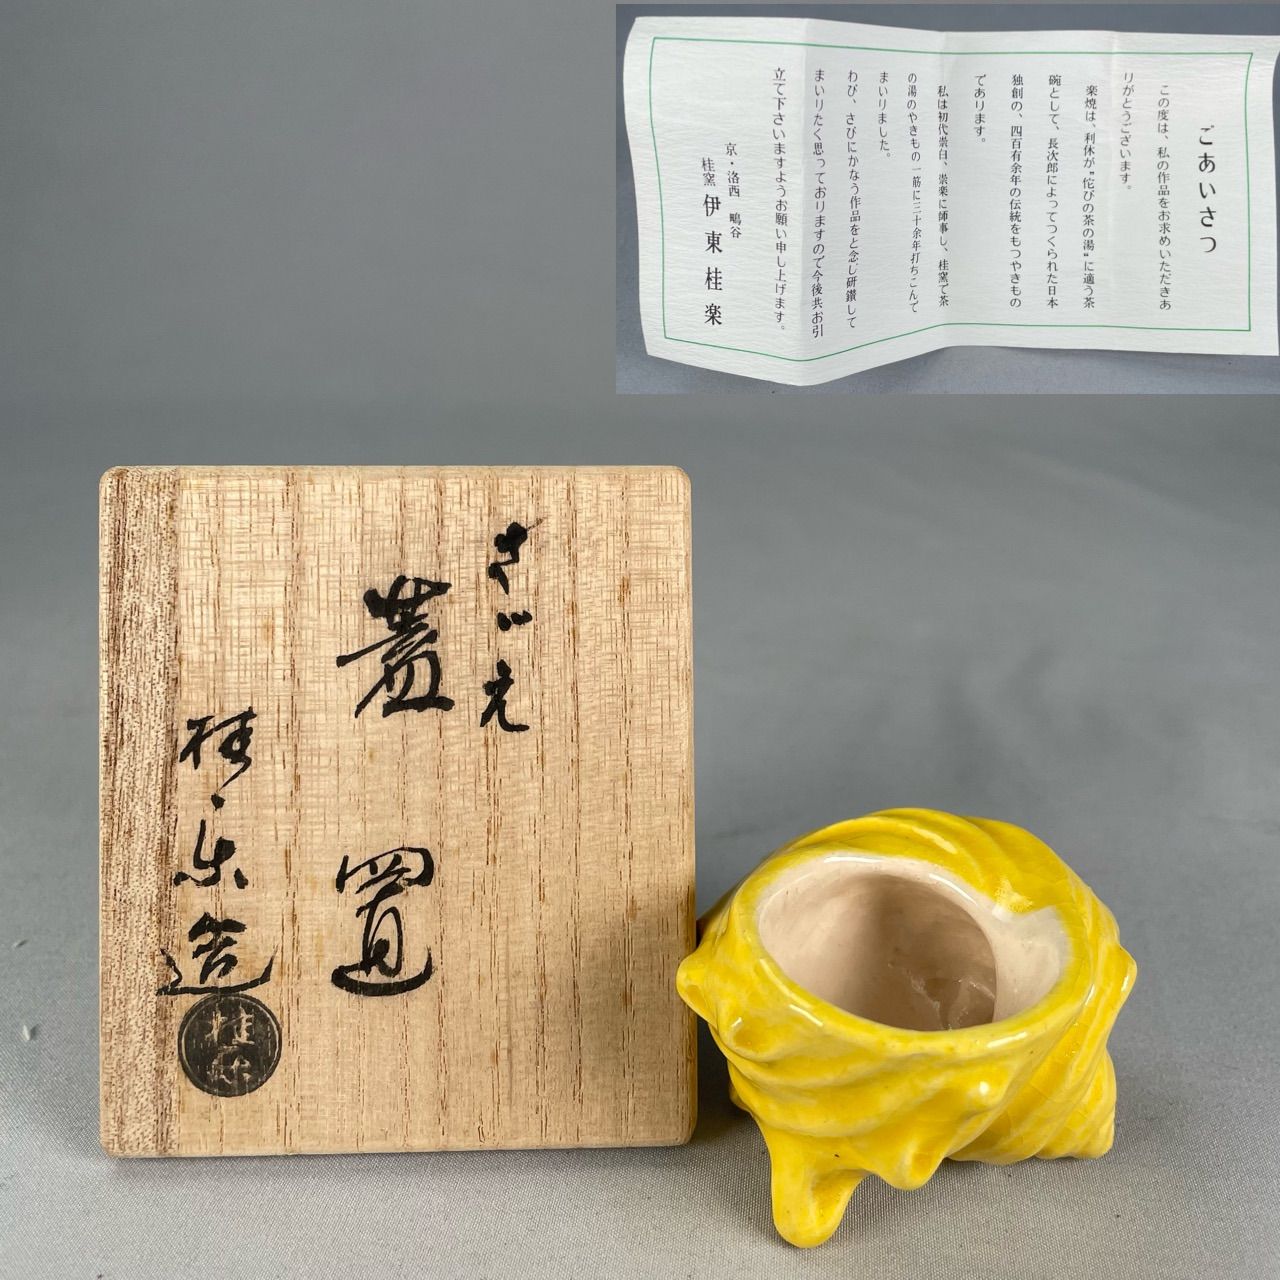 ごあいさつ
この度は、私の作品をお求めいただきあ
りがとうございます。
楽焼は、利休が〝侘びの茶の湯〟に適う茶
碗として、長次郎によってつくられた日本
独創の、四百有余年の伝統をもつやきもの
であります。
私は初代崇白、崇楽に師事し、桂窯で茶
の湯のやきもの一筋に三十余年打ちこんで
まいりました。
わび、さびにかなう作品をと念じ研鑽して
まいりたく思っておりますので今後共お引
立て下さいますようお願い申し上げます。
京・洛西 鴫谷
桂窯 伊東桂楽
さゞえ
蓋置
桂楽造
桂楽